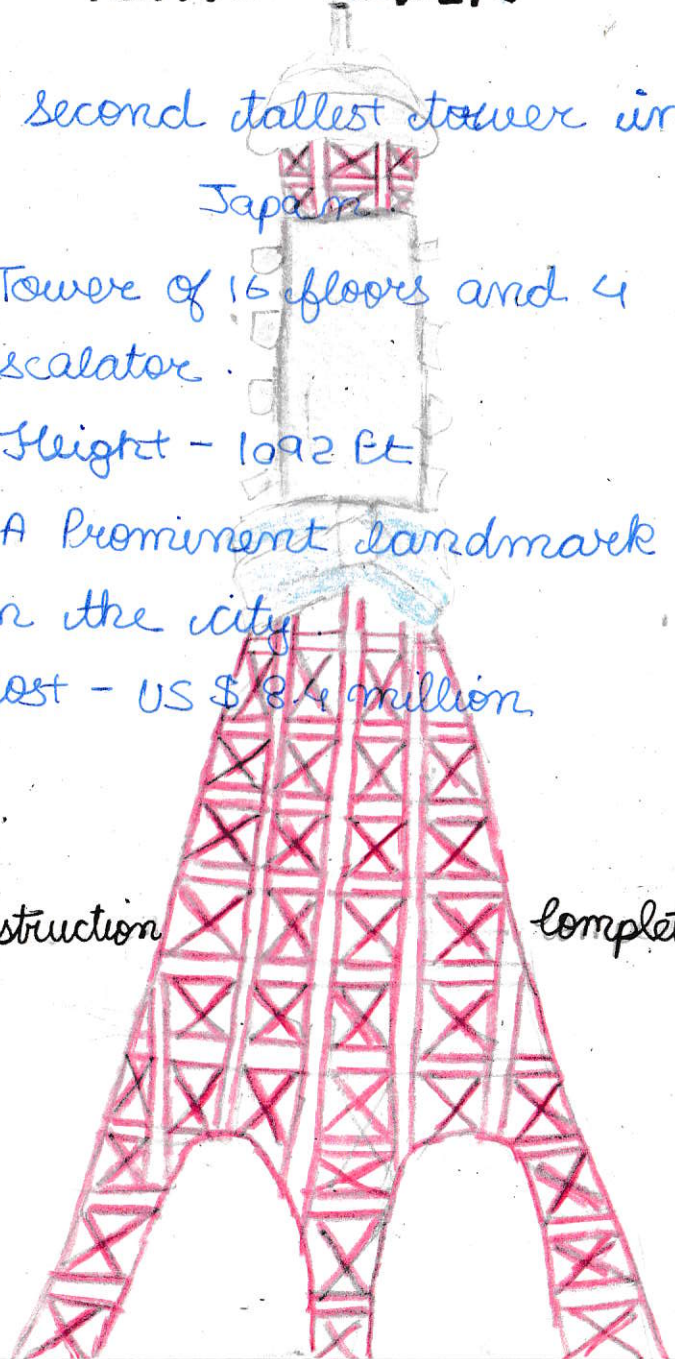 second tallest tower in
Japan.
Tower of 16 floors and 4
scalator.
Height - 1092 Ft
A Prominent landmark
n the city
ost - US $ 8.4 million
struction complet